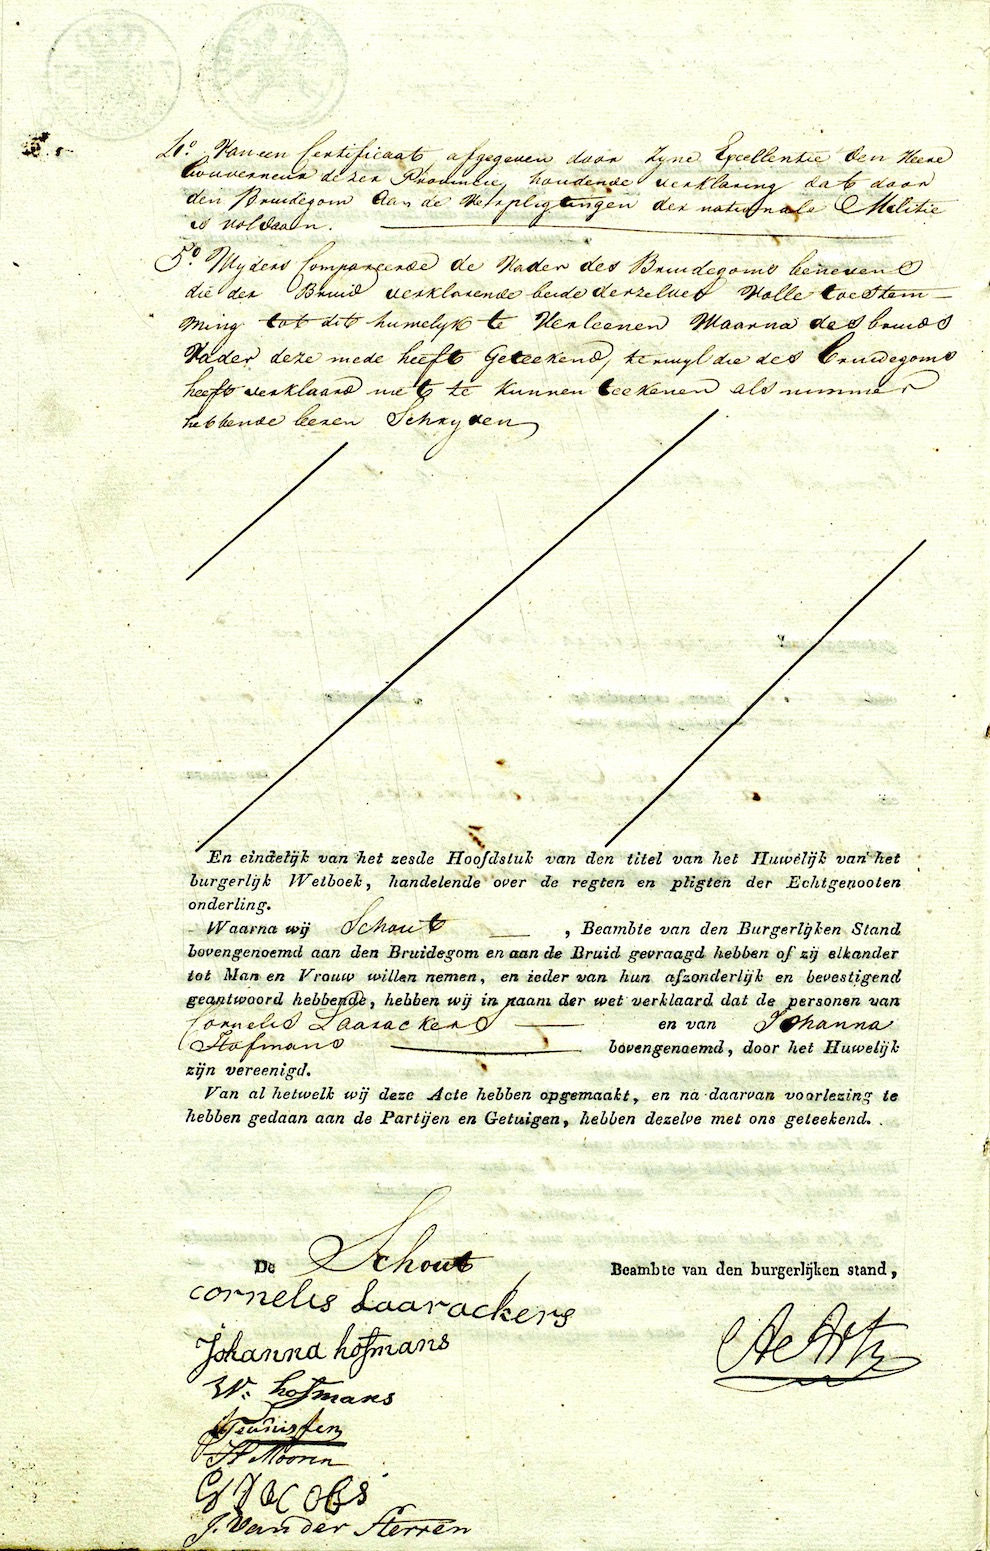 4.º Van een Certificaat afgegeven door Zyne Excellentie den Heere
Gouverneur dezer Provincie, houdende verklaring dat door
den Bruidegom Aan de Verpligtingen der nationale Militie
is voldaan.
5.º Wyders Compareerde de Vader des Bruidegoms benevens
die der Bruid verklarende beide derzelver Volle toestem-
ming tot dit humelyk te Verleenen Waarna des bruids
Vader deze mede heeft Geteekend, terwyl die des Bruidegoms
heeft verklaard niet te Kunnen teekenen als nimmer
hebbende leeren Schryven
En eindelijk van het zesde Hoofdstuk van den titel van het Huwelijk van het
burgerlijk Wetboek, handelende over de regten en pligten der Echtgenooten
onderling.
Waarna wij Schout , Beambte van den Burgerlijken Stand
bovengenoemd aan den Bruidegom en aan de Bruid gevraagd hebben of zij elkander
tot Man en Vrouw willen nemen, en ieder van hun afzonderlijk en bevestigend
geantwoord hebbende, hebben wij in naam der wet verklaard dat de personen van
Cornelis Laarackers en van Johanna
Hofmans bovengenoemd, door het Huwelijk
zijn vereenigd.
Van al hetwelk wij deze Acte hebben opgemaakt, en na daarvan voorlezing te
hebben gedaan aan de Partijen en Getuigen, hebben dezelve met ons geteekend.
De Schout Beambte van den burgerlijken stand,
cornelis Laarackers
Johanna hofmans
W: hofmans
Teunissen
H Mooren
G Jacobs
J. Van der Sterren